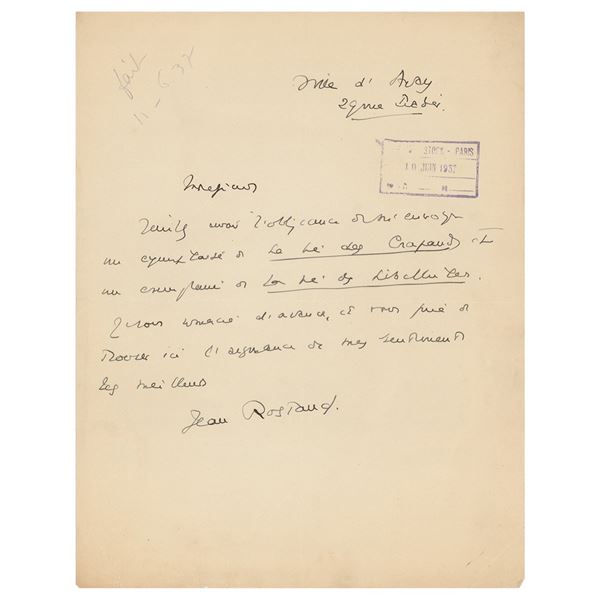 fait
11-6-37
Ville d'Avray
29 rue Pradier.
STOCK - PARIS
10 JUIN 1937
Monsieur
Veuillez avoir l'obligeance de m'envoyer
un exemplaire de La Vie des Crapauds et
un exemplaire de La Vie des Libellules.
Je vous remercie d'avance, et vous prie de
trouver ici l'assurance de mes sentiments
les meilleurs
Jean Rostand.